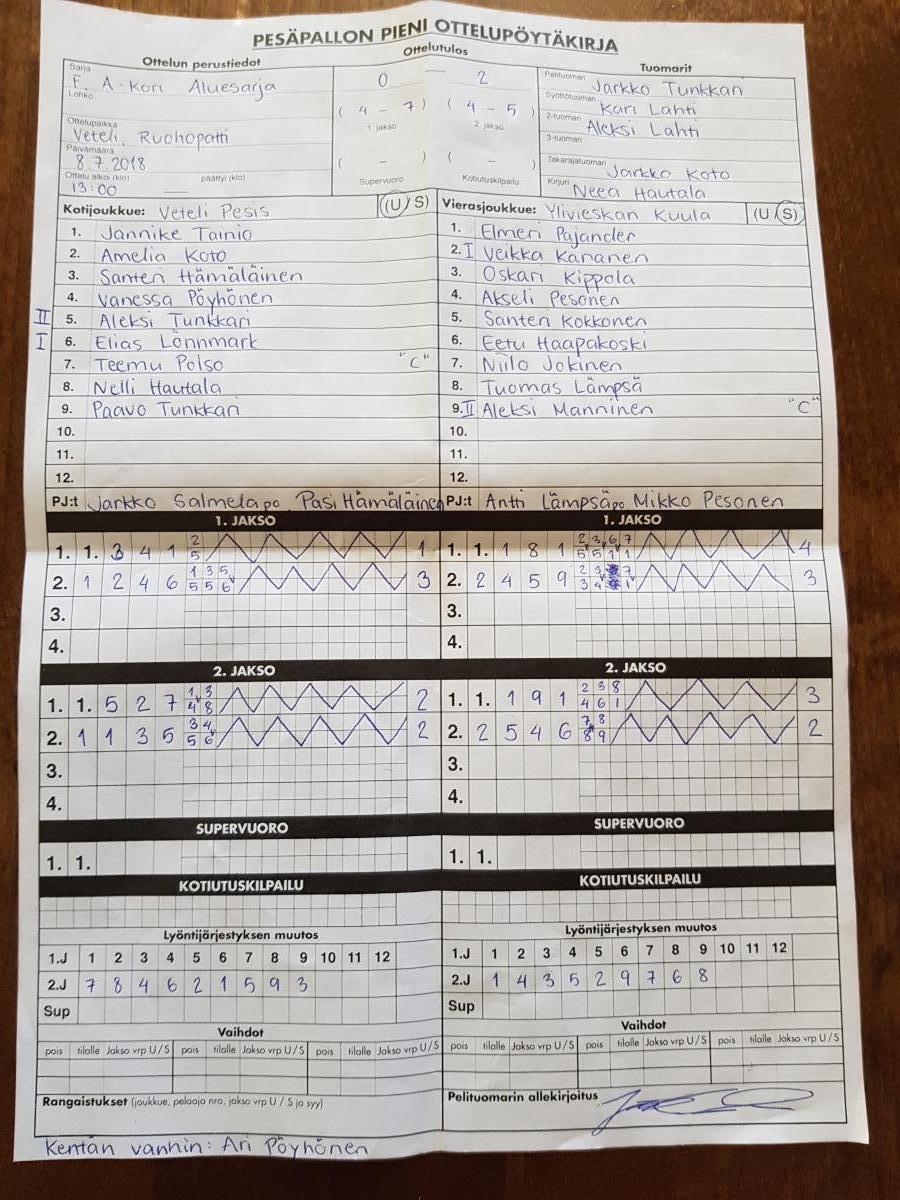 PESÄPALLON PIENI OTTELUPÖYTÄKIRJA
Ottelun perustiedot
Ottelutulos
Tuomarit
Sarja
F. A-Kori Aluesarja
Lohko
Ottelupaikka
Veteli, Ruohopatti
Päivämäärä
8.7.2018
Ottelu alkoi (klo) päättyi (klo)
13:00 —
0 — 2
( 4 - 7 ) ( 4 - 5 )
1. jakso 2. jakso
( - ) ( - )
Supervuoro Kotiutuskilpailu
Pelituomari
Jarkko Tunkkari
Syöttötuomari
Kari Lahti
2-tuomari
Aleksi Lahti
3-tuomari
Takarajatuomari
Jarkko Koto
Kirjuri
Neea Hautala
Kotijoukkue: Veteli Pesis (U/S)
1. Jannike Tainio
2. Amelia Koto
3. Santeri Hämäläinen
4. Vanessa Pöyhönen
II 5. Aleksi Tunkkari
I 6. Elias Lönnmark
7. Teemu Polso "C"
8. Nelli Hautala
9. Paavo Tunkkari
10.
11.
12.
PJ:t Jarkko Salmela po Pasi Hämäläinen
Vierasjoukkue: Ylivieskan Kuula (U/S)
1. Elmeri Pajander
2. I Veikka Kananen
3. Oskari Kippola
4. Akseli Pesonen
5. Santeri Kokkonen
6. Eetu Haapakoski
7. Niilo Jokinen
8. Tuomas Lämpsä
9. II Aleksi Manninen "C"
10.
11.
12.
PJ:t Antti Lämpsä po Mikko Pesonen
1. JAKSO
1. 1. 3 4 1 2 5 1
2. 1 2 4 6 1 3 5 5 5 6 3
3.
4.
1. JAKSO
1. 1. 1 8 1 2 3 6 7 5 5 1 1 4
2. 2 4 5 9 2 3 7 3 4 1 3
3.
4.
2. JAKSO
1. 1. 5 2 7 1 3 4 8 2
2. 1 1 3 5 3 4 5 6 2
3.
4.
2. JAKSO
1. 1. 1 9 1 2 3 8 4 6 1 3
2. 2 5 4 6 7 8 8 9 2
3.
4.
SUPERVUORO
1. 1.
SUPERVUORO
1. 1.
KOTIUTUSKILPAILU
KOTIUTUSKILPAILU
Lyöntijärjestyksen muutos
1.J 1 2 3 4 5 6 7 8 9 10 11 12
2.J 7 8 4 6 2 1 5 9 3
Sup
Lyöntijärjestyksen muutos
1.J 1 2 3 4 5 6 7 8 9 10 11 12
2.J 1 4 3 5 2 9 7 6 8
Sup
Vaihdot
pois tilalle Jakso vrp U/S pois tilalle Jakso vrp U/S pois tilalle Jakso vrp U/S
Vaihdot
pois tilalle Jakso vrp U/S pois tilalle Jakso vrp U/S pois tilalle Jakso vrp U/S
Rangaistukset (joukkue, pelaaja nro, jakso vrp U / S ja syy)
Pelituomarin allekirjoitus
Kentän vanhin: Ari Pöyhönen